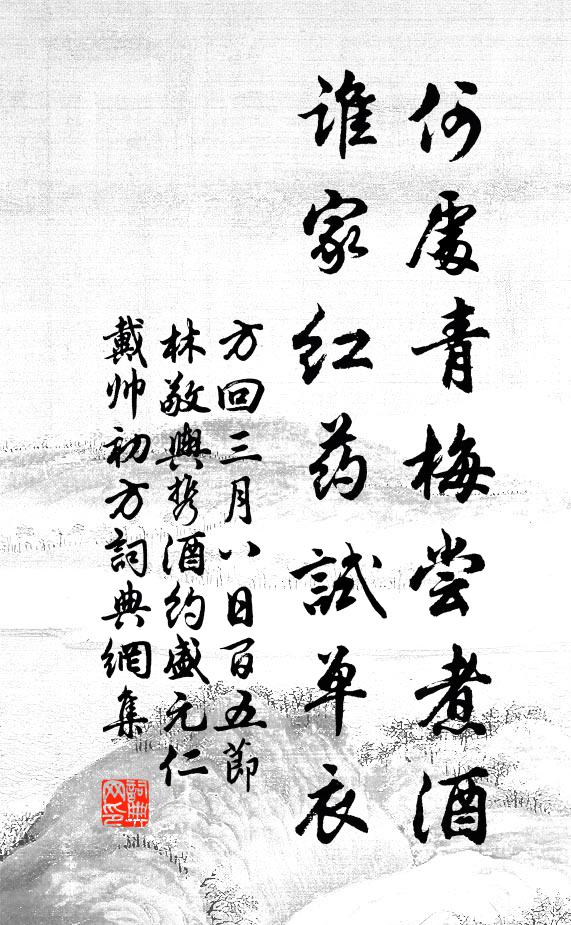 何處青梅尝煮酒
谁家红药試单衣
方回三月八日百五節
林敬與携酒約盛元仁
戴帅初方詞典網集
詞典
网印